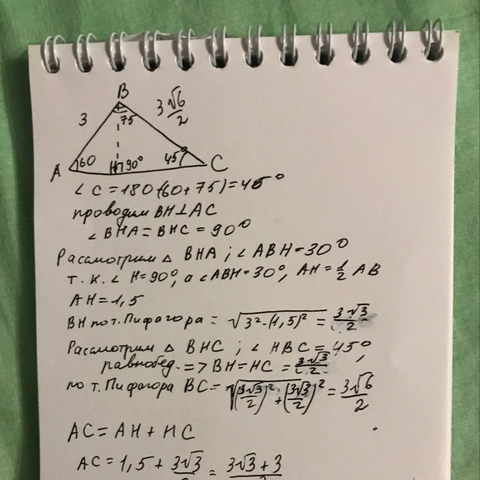 B
3 75 3√6/2
A 60 H 90° 45° C
∠C = 180(60+75) = 45°
проводим BH⊥AC
∠BHA = BHC = 90°
Рассмотрим △ BHA; ∠ABH = 30°
т.к. ∠H = 90°, а ∠ABH = 30°, AH = 1/2 AB
AH = 1,5
BH по т. Пифагора = √(3²-(1,5)²) = 3√3/2
Расмотрим △ BHC; ∠HBC = 45°,
равнобед. => BH = HC = 3√3/2
по т. Пифагора BC = √((3√3/2)² + (3√3/2)²) = 3√6/2
AC = AH + HC
AC = 1,5 + 3√3/2 = 3√3+3/2